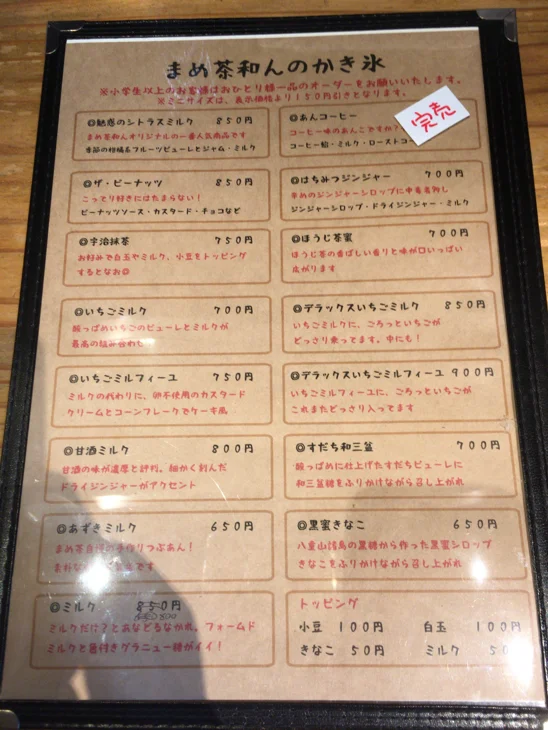 まめ茶和んのかき氷
※小学生以上のお客様はおひとり様一品のオーダーをお願いいたします。
※ミニサイズは、表示価格より150円引きとなります。
◎魅惑のシトラスミルク 850円
まめ茶和んオリジナルの一番人気商品です
季節の柑橘系フルーツピューレとジャム・ミルク
◎あんコーヒー
完売
コーヒー味のあんこですか?
コーヒー餡・ミルク・ローストコー
◎ザ・ピーナッツ 850円
こってり好きにはたまらない!
ピーナッツソース・カスタード・チョコなど
◎はちみつジンジャー 700円
辛めのジンジャーシロップに中毒者続出
ジンジャーシロップ・ドライジンジャー・ミルク
◎宇治抹茶 750円
お好みで白玉やミルク、小豆をトッピング
するとなお◎
◎ほうじ茶蜜 700円
ほうじ茶の香ばしい香りと味が口いっぱい
広がります
◎いちごミルク 700円
酸っぱめいちごのピューレとミルクが
最高の組み合わせ
◎デラックスいちごミルク 850円
いちごミルクに、ごろっといちごが
どっさり乗ってます。中にも!
◎いちごミルフィーユ 750円
ミルクの代わりに、卵不使用のカスタード
クリームとコーンフレークでケーキ風
◎デラックスいちごミルフィーユ 900円
いちごミルフィーユに、ごろっといちごが
これまたどっさり入ってます
◎甘酒ミルク 800円
甘酒の味が濃厚と評判。細かく刻んだ
ドライジンジャーがアクセント
◎すだち和三盆 700円
酸っぱめに仕上げたすだちピューレに
和三盆糖をふりかけながら召し上がれ
◎あずきミルク 650円
まめ茶自慢の手作りつぶあん!
です
◎黒蜜きなこ 650円
八重山諸島の黒糖から作った黒蜜シロップ
きなこをふりかけながら召し上がれ
◎ミルク 850円
800
ミルクだけ?とあなどるなかれ。フォームド
ミルクと蜜付きグラニュー糖がイイ!
トッピング
小豆 100円 白玉 100円
きなこ 50円 ミルク 50